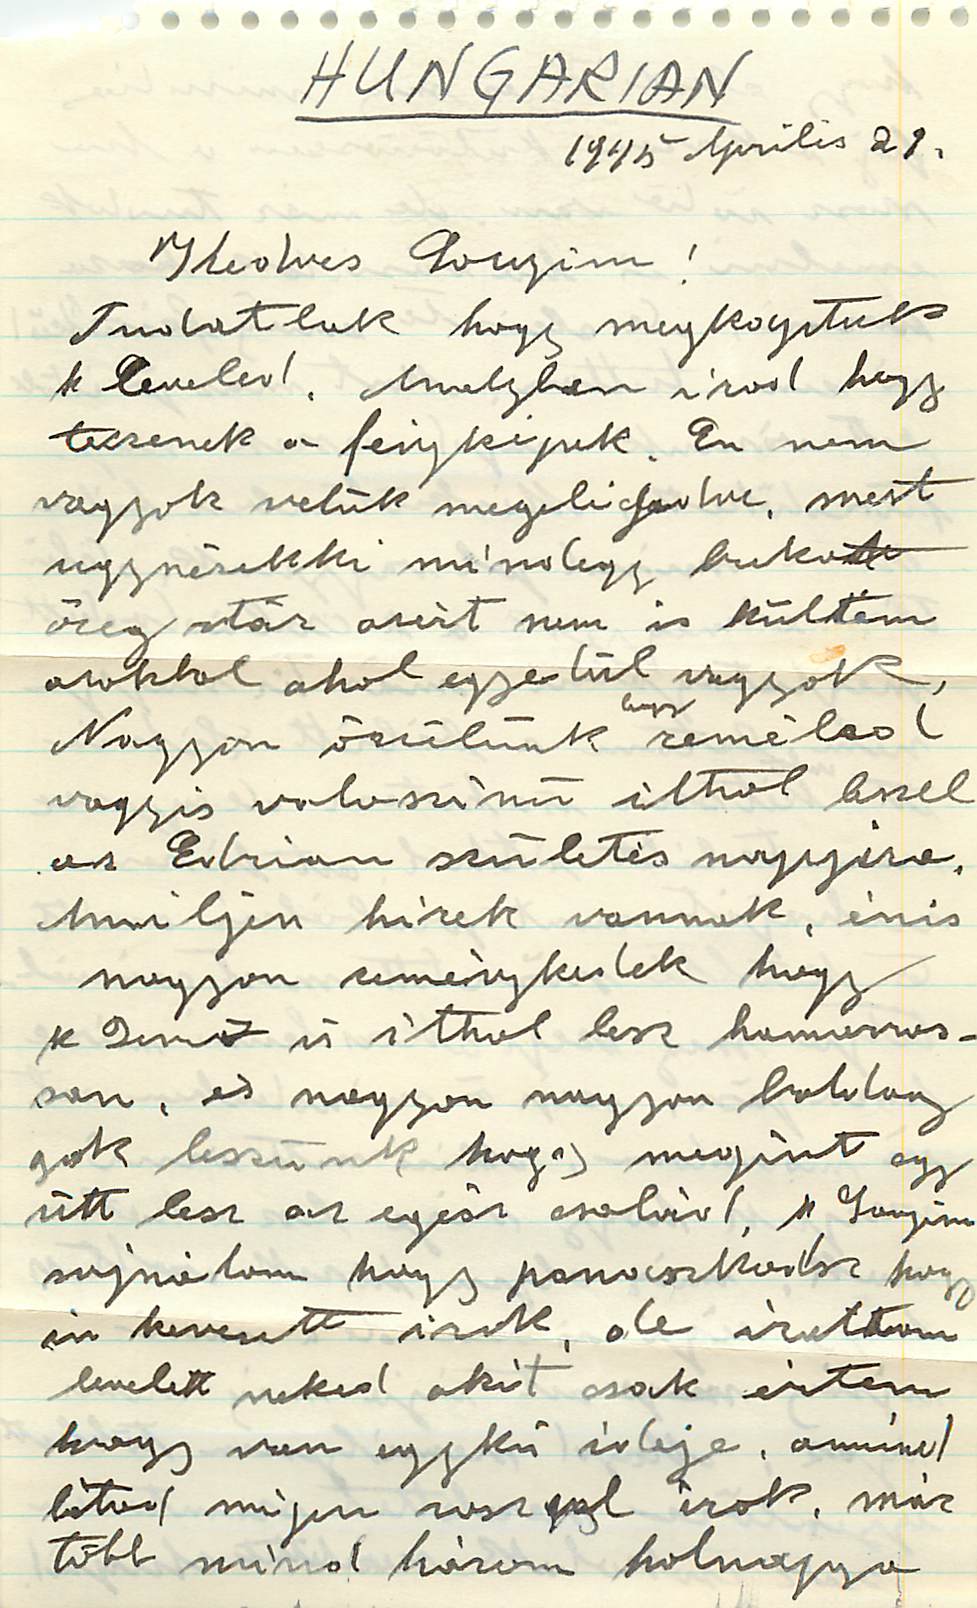 HUNGARIAN
1945 Április 29.
Kedves Louzim!
Tudatluk hogy megkaptuk
k leveled. Amelyben irod hogy
teczenek a feiykipek. En nem
vagyok velük megeligedve, mert
ugynézekki mindegy
öreg már azért nem is kültem
azokbol ahol egyedül vagyok,
Nagyon örülünk hogy remélsed
vagyis valoszinü itthol leszel
az Edrian születés napjára.
Amiljen hirek vannak, énis
nagyon reménykedek hogy
k is itthol lesz hamarros-
san, és nagyon nagyon boldog
gok leszünk hogy megint egy
ütt lesz az egész család, k Louzim
sajnálom hogy panaszkodsz hogy
én kevesett irok, de irattam
levelett neked akit csak értem
hogy van egykü ideje, amind
látod mijen roszul irok, már
több mind három holnapja